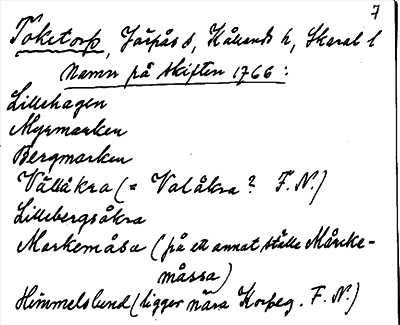 7
Toketorp, Järpås s, Kållands h, Skarab l
Namn på skiften 1766:
Lillehagen
Myrmarken
Bergmarken
Vällåkra (= Valåkra? F.N.)
Lillebergsåkra
Markemåsa (på ett annat ställe Mårcke-
måssa)
Himmelslund (ligger nära Korpeg. F.N.)